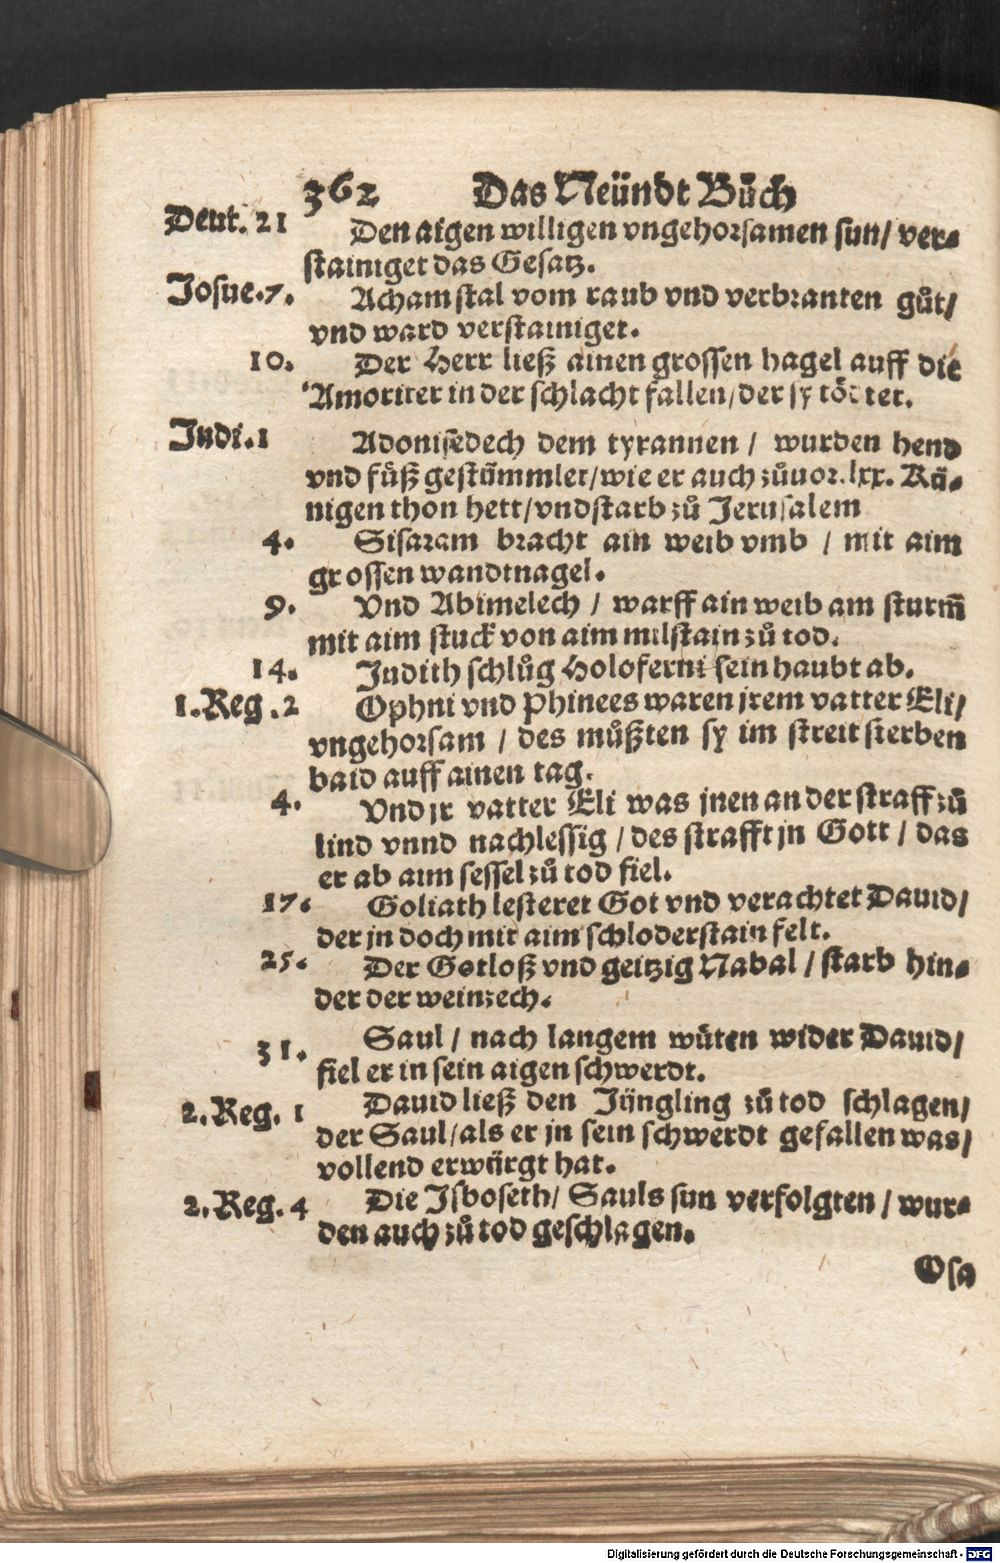 362 Das Neündt Bůch
Deut. 21 Den aigen willigen vngehorsamen sun/ ver⸗
stainiget das Gesatz.
Josue.7. Acham stal vom raub vnd verbranten gůt/
vnd ward verstainiget.
10. Der Herr ließ ainen grossen hagel auff die
Amoriter in der schlacht fallen/der sy tödtet.
Judi.1 Adonisedech dem tyrannen / wurden hend
vnd füß gestümmlet/wie er auch zůuor.lxx. Kü⸗
nigen thon hett/vnd starb zů Jerusalem
4. Sisaram bracht ain weib vmb / mit aim
grossen wandtnagel.
9. Vnd Abimelech / warff ain weib am sturm̃
mit aim stuck von aim milstain zů tod.
14. Judith schlůg Holoferni sein haubt ab.
1.Reg.2 Ophni vnd Phinees waren jrem vatter Eli/
vngehorsam / des můßten sy im streit sterben
baid auff ainen tag.
4. Vnd jr vatter Eli was jnen an der straff zů
lind vnnd nachlessig / des strafft jn Gott / das
er ab aim sessel zů tod fiel.
17. Goliath lesteret Got vnd verachtet Dauid/
der jn doch mit aim schloderstain felt.
25. Der Gotloß vnd geitzig Nabal / starb hin⸗
der der weinzech.
31. Saul / nach langem wůten wider Dauid/
fiel er in sein aigen schwerdt.
2.Reg. 1 Dauid ließ den Jüngling zů tod schlagen/
der Saul/als er jn sein schwerdt gefallen was/
vollend erwürgt hat.
2.Reg.4 Die Jsboseth/ Sauls sun verfolgten / wur⸗
den auch zů tod geschlagen.
Osa
Digitalisierung gefördert durch die Deutsche Forschungsgemeinschaft - DFG